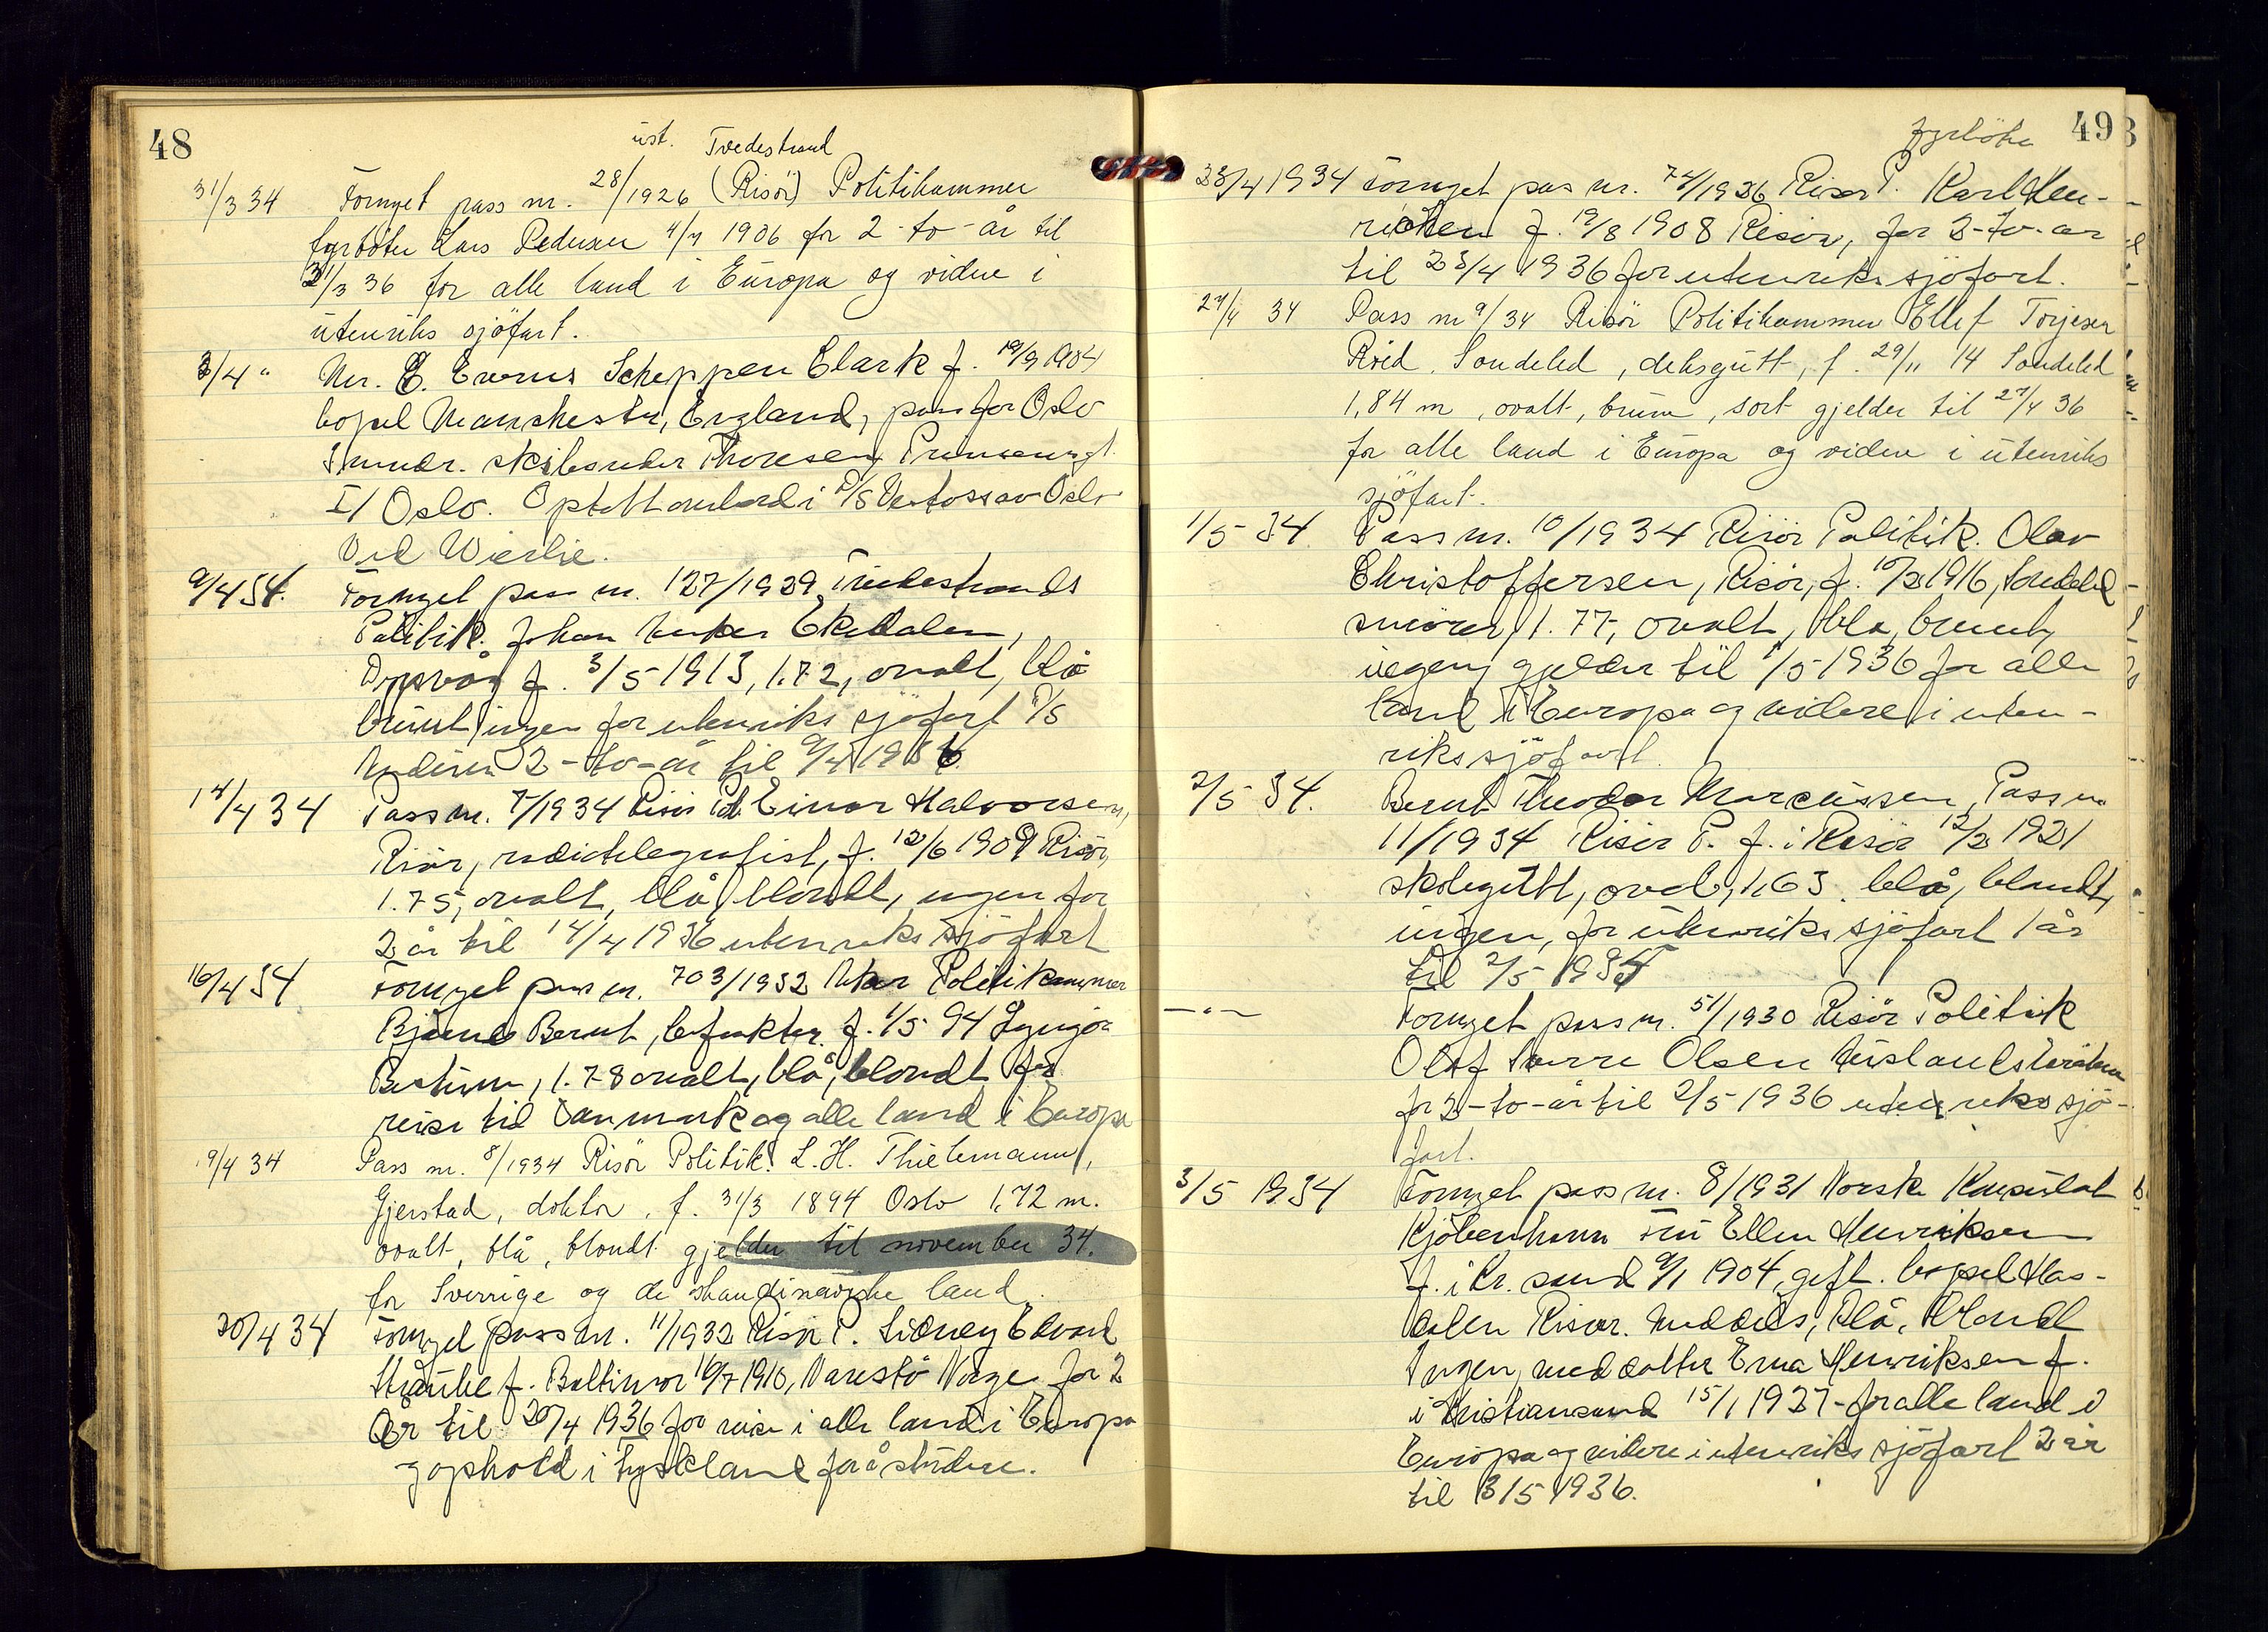 48
ust. Tvedestrand
31/3 34 Fornyet pass nr. 28/1926 (Risör) Politikammer
fyrböter Lars Pedersen 4/7 1906 for 2-to-år til
31/3 36 for alle land i Europa og videre i
utenriks sjöfart.
3/4 " Mr. Scheppen Clark f. 19/9 1904
bopel Manchester, England, pass for Oslo
skibsreder Thoresen,
I/ Oslo. Optatt ombord i D/S av Oslo
9/4 34. Fornyet pass nr. 127/1929 Tvedestrands
Politik. Johan
f. 3/5 1913, 1.72, ovalt, blå
brunt ingen for utenriks sjöfart D/S
2-to-år til 9/4 1936
14/4 34 Pass nr. 7/1934 Risör Pol. Einar Halvorsen,
Risör, radiotelegrafist, f. 12/6 1909 Risör,
1.75, ovalt, blå, blondt, ingen for
2 år til 14/4 1936 utenriks sjöfart
16/4 34 Fornyet pass nr. 703/1932 Aker Politikammer
Bjarne Bernt, f. 1/5 94 Lyngör
1.78 ovalt, blå, blondt for
reise til Danmark og alle land i Europa
19/4 34 Pass nr. 8/1934 Risör Politik. L. H. Thielemann,
Gjerstad, doktor, f. 31/3 1894 Oslo 1,72 m.
ovalt, blå, blondt gjelder til november 34.
for Sverrige og de skandinaviske land.
20/4 34 Fornyet pass nr. 11/1932 Risör P. Sidney Edvard
f. Baltimor 16/7 1910, Narestö Norge for 2
År til 20/4 1936 for reise i alle land i Europa
og ophold i Tyskland for å studere.
49
fyrböter
23/4 1934 Fornyet pas nr. 74/1926 Risör P. Karl Hen-
richsen f. 19/8 1908 Risör, for 2-to-år
til 23/4 1936 for utenriks sjöfart.
27/4 34 Pass nr 9/34 Risör Politikammer Ellef Torjesen
Röed, Sondeled, dæksgutt, f. 29/11 14 Sondeled
1,84 m, ovalt, brune, sort gjelder til 27/4 36
for alle land i Europa og videre i utenriks
sjöfart.
1/5 34 Pass nr. 10/1934 Risör Politik. Olav
Christoffersen, Risör, f. 10/3 1916, Sondeled
smörer, 1.77, ovalt, blå, brunt,
ingen, gjelder til 1/5 1936 for alle
land i Europa og videre i uten-
riks sjöfart.
2/5 34. Bernt Theodor Marcussen, Pass nr.
11/1934 Risör P. f. i Risör 12/2 1921
skolegutt, ovalt, 1,63. blå, blondt,
ingen, for utenriks sjöfart 1 år
til 2/5 1935
—"— Fornyet pass nr. 51/1930 Risör Politik
Olaf Sverre Olsen
for 2-to-år til 2/5 1936 utenriks sjö-
fart.
3/5 1934 Fornyet pass nr. 8/1931 Norsk Konsulat
Kjöbenhavn Fru Ellen Henriksen
f. i Kr. sand 9/1 1904, gift. bopel Has-
dalen Risör. Middels, blå, blondt
Ingen, med datter Erna Henriksen f.
i Kristiansand 15/1 1927 - for alle land i
Europa og videre i utenriks sjöfart 2 år
til 3/5 1936.